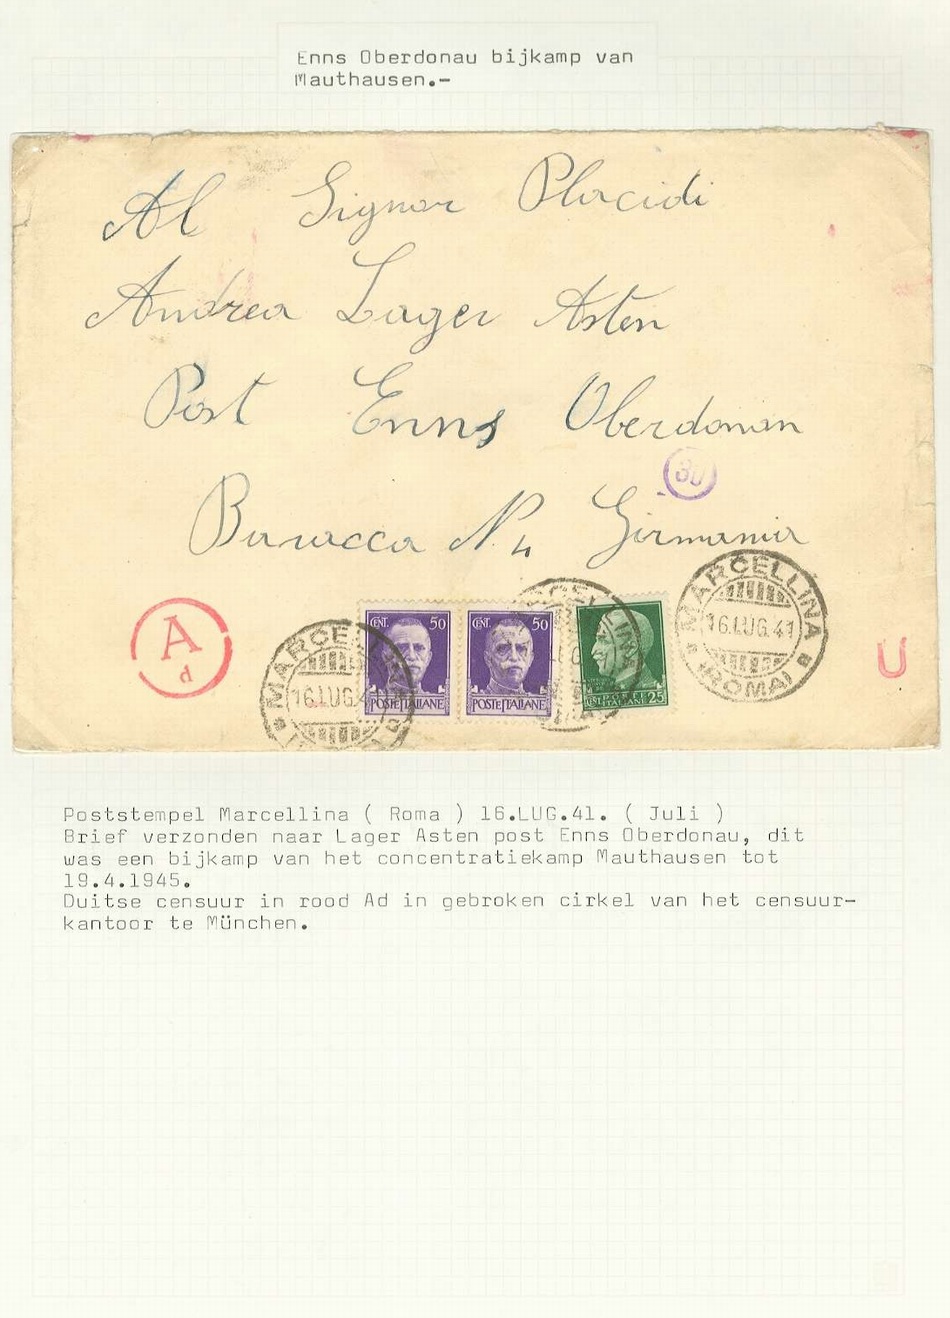 Enns Oberdonau bijkamp van
Mauthausen.-
Al Signor Placidi
Andrea Lager Asten
Post Enns Oberdonan
30
Baracca N. 4 Girmania
A
d
MARCELLINA
16.LUG.4
CENT. 50
POSTE ITALIANE
CENT. 50
POSTE ITALIANE
25
MARCELLINA
16.LUG.41
(ROMA)
U
Poststempel Marcellina ( Roma ) 16.LUG.41. ( Juli )
Brief verzonden naar Lager Asten post Enns Oberdonau, dit
was een bijkamp van het concentratiekamp Mauthausen tot
19.4.1945.
Duitse censuur in rood Ad in gebroken cirkel van het censuur-
kantoor te München.